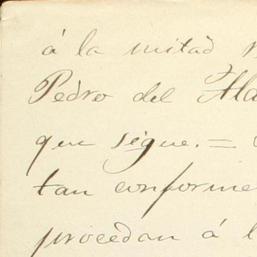 á la mitad
Pedro del
que sigue. =
tan conforme
procedan á l